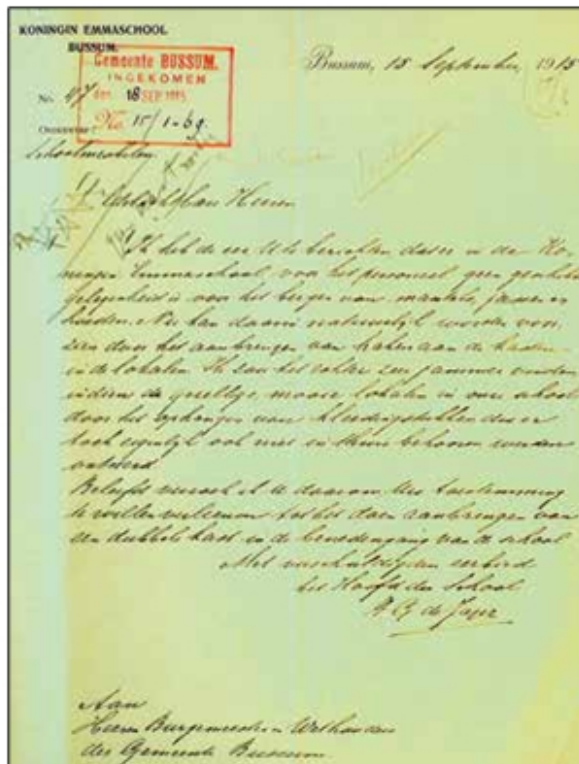 KONINGIN EMMASCHOOL
BUSSUM.
Gemeente BUSSUM.
INGEKOMEN
den 18 SEP. 1915
No. 15/1-69.
Bussum, 15 September 1915
No. 47
ONDERWERP:
Schoolmeubelen
Edelachtbare Heeren
Ik heb de eer U te berichten dat er in de Ko-
ningin Emmaschool, voor het personeel geen geschikte
gelegenheid is voor het bergen van mantels, jassen en
hoeden. Nu kan daarin natuurlijk worden voor-
zien door het aanbrengen van haken aan de kasten
in de lokalen. Ik zou het echter zeer jammer vinden
indien de gezellige, mooie lokalen in onze school
door het ophangen van kleedingstukken die er
toch eigenlijk ook niet in thuis behooren werden
ontsierd.
Beleefd verzoek ik U daarom Uw toestemming
te willen verleenen tot het doen aanbrengen van
een dubbele kast in de benedengang van de school
Met verschuldigden eerbied
het Hoofd der School
de Jager
Aan
Heeren Burgemeester en Wethouders
der Gemeente Bussum.